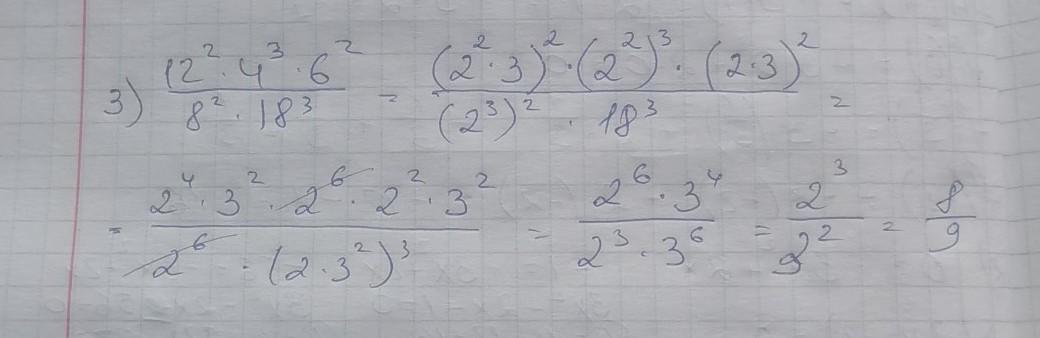 3) (12² · 4³ · 6²)/(8² · 18³) = ((2² · 3)² · (2²)³ · (2·3)²)/((2³)² · 18³) =
= (2⁴ · 3² · 2⁶ · 2² · 3²)/(2⁶ · (2·3²)³) = (2⁶ · 3⁴)/(2³ · 3⁶) = 2³/3² = 8/9